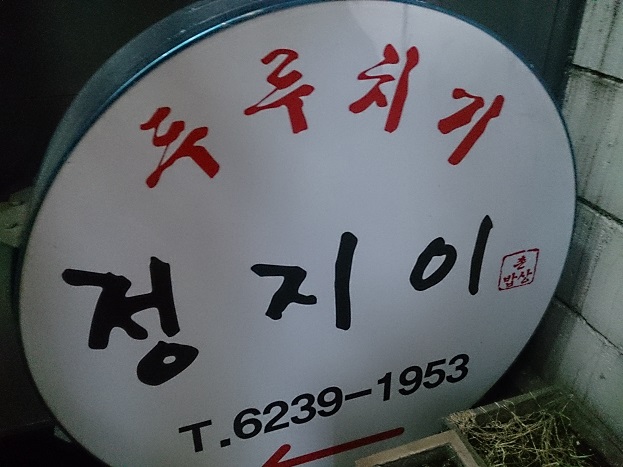 두루치기
정지이
촌
밥상
T.6239-1953